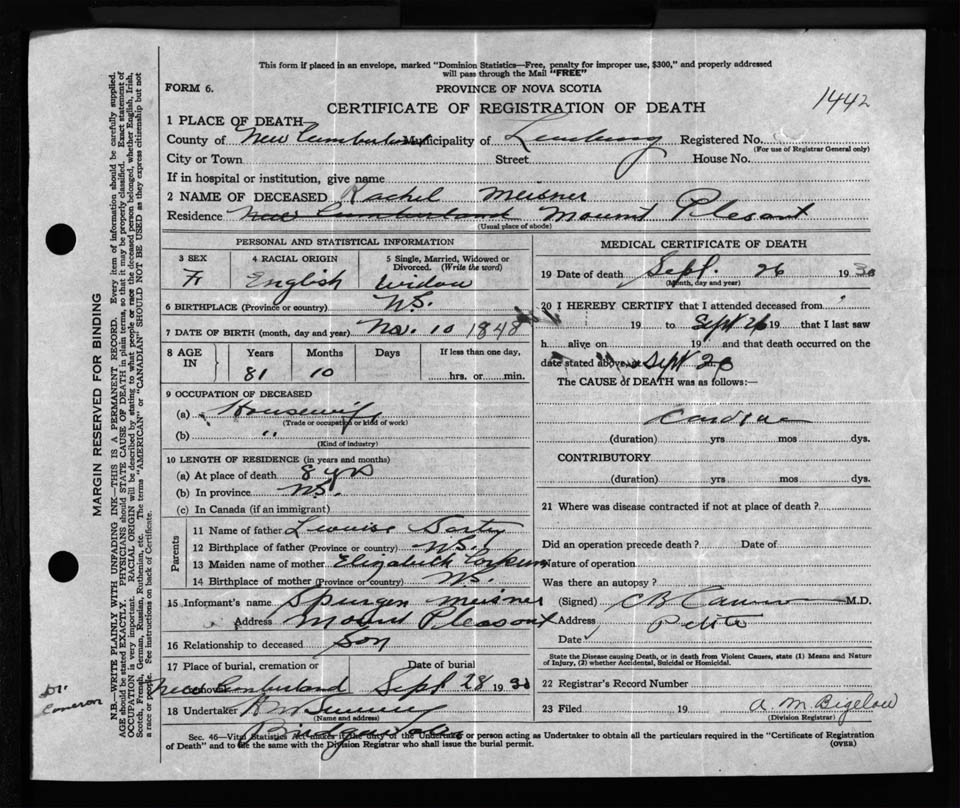 This form if placed in an envelope, marked "Dominion Statistics—Free, penalty for improper use, $300," and properly addressed
will pass through the Mail "FREE"
FORM 6.
PROVINCE OF NOVA SCOTIA
CERTIFICATE OF REGISTRATION OF DEATH
1442
1 PLACE OF DEATH
County of New Cumberland Municipality of Lunburg Registered No.
(For use of Registrar General only)
City or Town Street House No.
If in hospital or institution, give name
2 NAME OF DECEASED Rachel Meisner
Residence New Cumberland Mount Plesant
(Usual place of abode)
PERSONAL AND STATISTICAL INFORMATION
3 SEX 4 RACIAL ORIGIN 5 Single, Married, Widowed or
Divorced. (Write the word)
F English Widow
6 BIRTHPLACE (Province or country) N.S.
7 DATE OF BIRTH (month, day and year) Nov. 10 1848
8 AGE IN Years Months Days If less than one day,
81 10 hrs. or min.
9 OCCUPATION OF DECEASED
(a) Housewife
(Trade or occupation or kind of work)
(b) "
(Kind of industry)
10 LENGTH OF RESIDENCE (in years and months)
(a) At place of death 8 yrs
(b) In province N.S.
(c) In Canada (if an immigrant)
Parents
11 Name of father Sarty
12 Birthplace of father (Province or country) N.S.
13 Maiden name of mother Elizabeth Corkum
14 Birthplace of mother (Province or country) N.S.
15 Informant's name Spurgen Meisner
Address Mount Pleasant
16 Relationship to deceased Son
17 Place of burial, cremation or Date of burial
removal New Cumberland Sept 28 1930
18 Undertaker
(Name and address)
Bridgewater
MEDICAL CERTIFICATE OF DEATH
19 Date of death Sept. 26 1930
(Month, day and year)
20 I HEREBY CERTIFY that I attended deceased from
19 to Sept 26 19 that I last saw
h alive on 19 and that death occurred on the
date stated above, at Sept 26
The CAUSE of DEATH was as follows:—
(duration) yrs mos dys.
CONTRIBUTORY
(duration) yrs mos dys.
21 Where was disease contracted if not at place of death?
Did an operation precede death? Date of
Nature of operation
Was there an autopsy?
(Signed) M.D.
Address Petite
Date
State the Disease causing Death, or in death from Violent Causes, state (1) Means and Nature
of Injury, (2) whether Accidental, Suicidal or Homicidal.
22 Registrar's Record Number
23 Filed 19 A. M. Bigelow
(Division Registrar)
Sec. 46—Vital Statistics Act the duty of the Undertaker or person acting as Undertaker to obtain all the particulars required in the "Certificate of Registration
of Death" and to file the same with the Division Registrar who shall issue the burial permit.
(OVER)
MARGIN RESERVED FOR BINDING
N.B.—WRITE PLAINLY WITH UNFADING INK—THIS IS A PERMANENT RECORD. Every item of information should be carefully supplied.
AGE should be stated EXACTLY. PHYSICIANS should STATE CAUSE OF DEATH in plain terms, so that it may be properly classified. Exact statement of
OCCUPATION is very important. RACIAL ORIGIN will be described by stating to what people or race the deceased person belonged, whether English, Irish,
Scotch, French, German, Russian, Ruthenian, etc. The terms "AMERICAN" or "CANADIAN" SHOULD NOT BE USED as they express citizenship but not
a race or people. See instructions on back of Certificate.
Dr.
Cameron